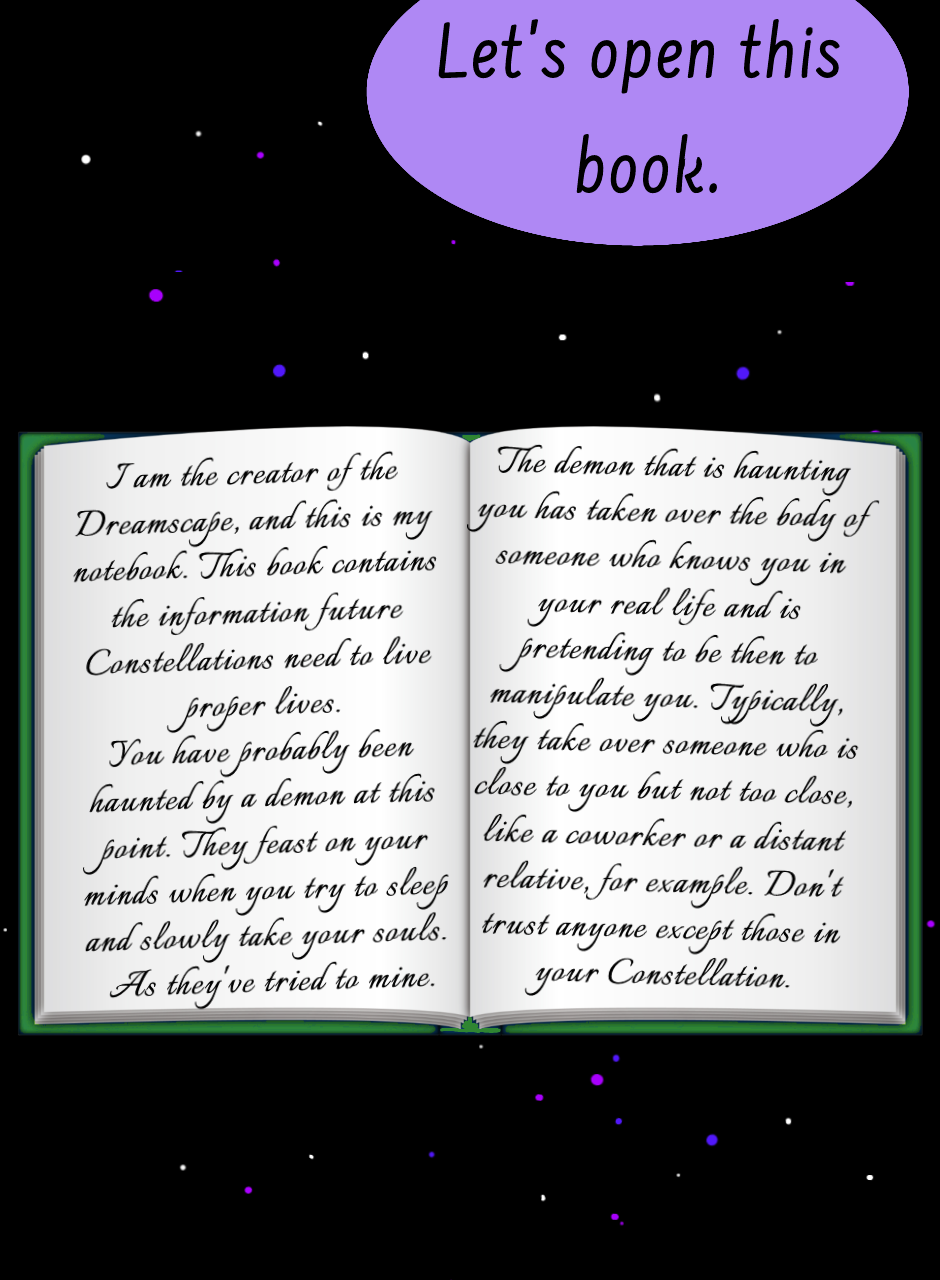 Let's open this
book.
I am the creator of the
Dreamscape, and this is my
notebook. This book contains
the information future
Constellations need to live
proper lives.
You have probably been
haunted by a demon at this
point. They feast on your
minds when you try to sleep
and slowly take your souls.
As they've tried to mine.
The demon that is haunting
you has taken over the body of
someone who knows you in
your real life and is
pretending to be then to
manipulate you. Typically,
they take over someone who is
close to you but not too close,
like a coworker or a distant
relative, for example. Don't
trust anyone except those in
your Constellation.